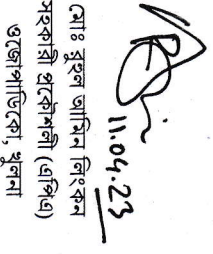 11.04.23
মোঃ রুহুল আমিন লিংকন
সহকারি প্রকৌশলী (এপিএ)
ওজোপাডিকো, খুলনা